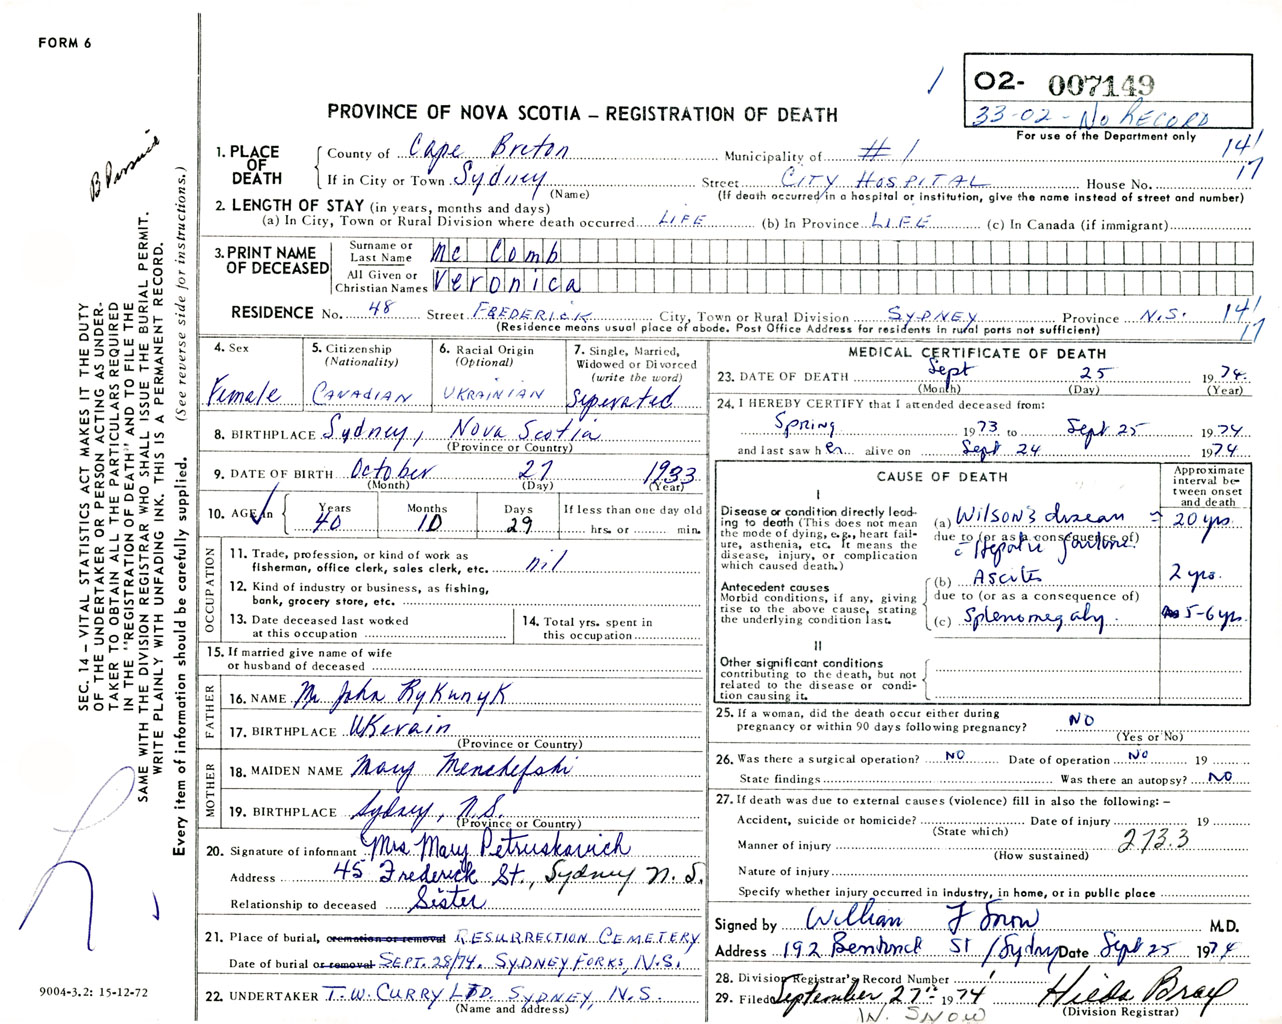 FORM 6
O2- 007149
33-02 - No RECORD
For use of the Department only
PROVINCE OF NOVA SCOTIA – REGISTRATION OF DEATH
1. PLACE OF DEATH
County of Cape Breton Municipality of # 1 14 1
If in City or Town Sydney Street CITY HOSPITAL House No. 17
(Name) (If death occurred in a hospital or institution, give the name instead of street and number)
2. LENGTH OF STAY (in years, months and days)
(a) In City, Town or Rural Division where death occurred LIFE (b) In Province LIFE (c) In Canada (if immigrant)
3. PRINT NAME OF DECEASED
Surname or Last Name Mc Comb
All Given or Christian Names Veronica
RESIDENCE No. 48 Street FREDERICK City, Town or Rural Division SYDNEY Province N.S. 14 1
(Residence means usual place of abode. Post Office Address for residents in rural parts not sufficient) 17
4. Sex
Female
5. Citizenship
(Nationality)
CANADIAN
6. Racial Origin
(Optional)
UKRAINIAN
7. Single, Married,
Widowed or Divorced
(write the word)
Seperated
8. BIRTHPLACE Sydney, Nova Scotia
(Province or Country)
9. DATE OF BIRTH October 27 1933
(Month) (Day) (Year)
10. AGE in
Years Months Days If less than one day old
40 10 29 hrs. or min.
OCCUPATION
11. Trade, profession, or kind of work as
fisherman, office clerk, sales clerk, etc. nil
12. Kind of industry or business, as fishing,
bank, grocery store, etc.
13. Date deceased last worked
at this occupation
14. Total yrs. spent in
this occupation
15. If married give name of wife
or husband of deceased
FATHER
16. NAME Mr John RyKunyK
17. BIRTHPLACE UKerain
(Province or Country)
MOTHER
18. MAIDEN NAME Mary Menchefski
19. BIRTHPLACE Sydney, N.S.
(Province or Country)
20. Signature of informant Mrs Mary Petruskavich
Address 45 Frederick St., Sydney N.S.
Relationship to deceased Sister
21. Place of burial, cremation or removal RESURRECTION CEMETERY
Date of burial or removal SEPT. 28/74. SYDNEY FORKS, N.S.
22. UNDERTAKER T.W. CURRY LTD. SYDNEY, N.S.
(Name and address)
MEDICAL CERTIFICATE OF DEATH
23. DATE OF DEATH Sept 25 1974
(Month) (Day) (Year)
24. I HEREBY CERTIFY that I attended deceased from:
Spring 1973 to Sept 25 1974
and last saw her alive on Sept 24 1974
CAUSE OF DEATH
Approximate
interval be-
tween onset
and death
I
Disease or condition directly lead-
ing to death (This does not mean
the mode of dying, e.g., heart fail-
ure, asthenia, etc. It means the
disease, injury, or complication
which caused death.)
(a) Wilson's disease = 20 yrs.
due to (or as a consequence of)
c Hepatic failure.
Antecedent causes
Morbid conditions, if any, giving
rise to the above cause, stating
the underlying condition last.
(b) Ascites 2 yrs.
due to (or as a consequence of)
(c) Splenomegaly. 5-6 yrs.
II
Other significant conditions
contributing to the death, but not
related to the disease or condi-
tion causing it.
25. If a woman, did the death occur either during
pregnancy or within 90 days following pregnancy? NO
(Yes or No)
26. Was there a surgical operation? NO Date of operation NO 19
State findings Was there an autopsy? NO
27. If death was due to external causes (violence) fill in also the following: –
Accident, suicide or homicide? Date of injury 19
(State which)
Manner of injury 273.3
(How sustained)
Nature of injury
Specify whether injury occurred in industry, in home, or in public place
Signed by William F Snow M.D.
Address 192 Bentinck St / Sydney Date Sept 25 1974
28. Division Registrar's Record Number 1
29. Filed September 27th 1974 Hilda Bray
W. SNOW (Division Registrar)
SEC. 14 – VITAL STATISTICS ACT MAKES IT THE DUTY
OF THE UNDERTAKER OR PERSON ACTING AS UNDER-
TAKER TO OBTAIN ALL THE PARTICULARS REQUIRED
IN THE "REGISTRATION OF DEATH" AND TO FILE THE
SAME WITH THE DIVISION REGISTRAR WHO SHALL ISSUE THE BURIAL PERMIT.
WRITE PLAINLY WITH UNFADING INK. THIS IS A PERMANENT RECORD.
Every item of information should be carefully supplied. (See reverse side for instructions.)
9004-3.2: 15-12-72